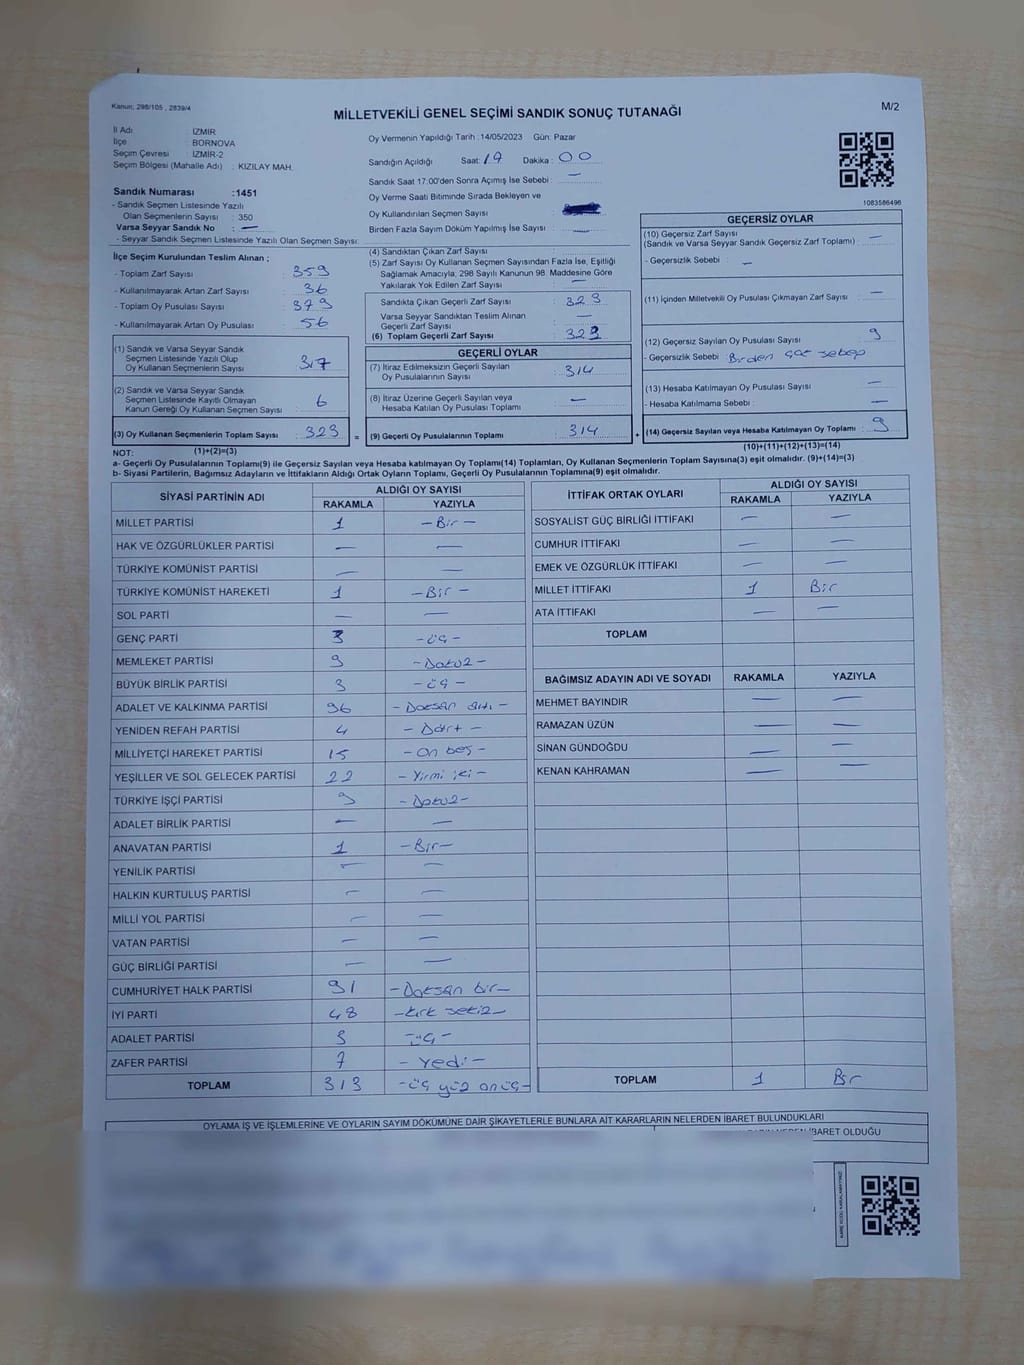 Kanun; 298/105 , 2839/4
MİLLETVEKİLİ GENEL SEÇİMİ SANDIK SONUÇ TUTANAĞI
M/2
İl Adı : İZMİR
İlçe : BORNOVA
Seçim Çevresi : İZMİR-2
Seçim Bölgesi (Mahalle Adı) : KIZILAY MAH.
Oy Vermenin Yapıldığı Tarih :14/05/2023 Gün: Pazar
Sandığın Açıldığı Saat: Dakika : 00
Sandık Saat 17:00'den Sonra Açımış İse Sebebi : —
Oy Verme Saati Bitiminde Sırada Bekleyen ve
Oy Kullandırılan Seçmen Sayısı :
Birden Fazla Sayım Döküm Yapılmış İse Sayısı : —
1083586496
Sandık Numarası :1451
- Sandık Seçmen Listesinde Yazılı
Olan Seçmenlerin Sayısı : 350
Varsa Seyyar Sandık No : —
- Seyyar Sandık Seçmen Listesinde Yazılı Olan Seçmen Sayısı:
İlçe Seçim Kurulundan Teslim Alınan ;
- Toplam Zarf Sayısı : 359
- Kullanılmayarak Artan Zarf Sayısı : 36
- Toplam Oy Pusulası Sayısı : 379
- Kullanılmayarak Artan Oy Pusulası : 56
(1) Sandık ve Varsa Seyyar Sandık
Seçmen Listesinde Yazılı Olup
Oy Kullanan Seçmenlerin Sayısı : 317
(2) Sandık ve Varsa Seyyar Sandık
Seçmen Listesinde Kayıtlı Olmayan
Kanun Gereği Oy Kullanan Seçmen Sayısı : 6
(3) Oy Kullanan Seçmenlerin Toplam Sayısı : 323
(4) Sandıktan Çıkan Zarf Sayısı :
(5) Zarf Sayısı Oy Kullanan Seçmen Sayısından Fazla İse, Eşitliği
Sağlamak Amacıyla, 298 Sayılı Kanunun 98. Maddesine Göre
Yakılarak Yok Edilen Zarf Sayısı : —
Sandıkta Çıkan Geçerli Zarf Sayısı : 323
Varsa Seyyar Sandıktan Teslim Alınan
Geçerli Zarf Sayısı : —
(6) Toplam Geçerli Zarf Sayısı : 323
GEÇERLİ OYLAR
(7) İtiraz Edilmeksizin Geçerli Sayılan
Oy Pusulalarının Sayısı : 314
(8) İtiraz Üzerine Geçerli Sayılan veya
Hesaba Katılan Oy Pusulası Toplamı : —
= (9) Geçerli Oy Pusulalarının Toplamı : 314
GEÇERSİZ OYLAR
(10) Geçersiz Zarf Sayısı
(Sandık ve Varsa Seyyar Sandık Geçersiz Zarf Toplamı) : —
- Geçersizlik Sebebi : —
(11) İçinden Milletvekili Oy Pusulası Çıkmayan Zarf Sayısı : —
(12) Geçersiz Sayılan Oy Pusulası Sayısı : 9
- Geçersizlik Sebebi : Birden çok sebep
(13) Hesaba Katılmayan Oy Pusulası Sayısı : —
- Hesaba Katılmama Sebebi : —
+ (14) Geçersiz Sayılan veya Hesaba Katılmayan Oy Toplamı : 9
NOT: (1)+(2)=(3)
(10)+(11)+(12)+(13)=(14)
a- Geçerli Oy Pusulalarının Toplamı(9) ile Geçersiz Sayılan veya Hesaba katılmayan Oy Toplamı(14) Toplamları, Oy Kullanan Seçmenlerin Toplam Sayısına(3) eşit olmalıdır. (9)+(14)=(3)
b- Siyasi Partilerin, Bağımsız Adayların ve İttifakların Aldığı Ortak Oyların Toplamı, Geçerli Oy Pusulalarının Toplamına(9) eşit olmalıdır.
SİYASİ PARTİNİN ADI ALDIĞI OY SAYISI
RAKAMLA YAZIYLA
MİLLET PARTİSİ 1 -Bir-
HAK VE ÖZGÜRLÜKLER PARTİSİ — —
TÜRKİYE KOMÜNİST PARTİSİ — —
TÜRKİYE KOMÜNİST HAREKETİ 1 -Bir-
SOL PARTİ — —
GENÇ PARTİ 3 -üç-
MEMLEKET PARTİSİ 9 -Dokuz-
BÜYÜK BİRLİK PARTİSİ 3 -üç-
ADALET VE KALKINMA PARTİSİ 96 -Doksan altı-
YENİDEN REFAH PARTİSİ 4 -Dört-
MİLLİYETÇİ HAREKET PARTİSİ 15 -On beş-
YEŞİLLER VE SOL GELECEK PARTİSİ 22 -Yirmi iki-
TÜRKİYE İŞÇİ PARTİSİ 9 -Dokuz-
ADALET BİRLİK PARTİSİ — —
ANAVATAN PARTİSİ 1 -Bir-
YENİLİK PARTİSİ — —
HALKIN KURTULUŞ PARTİSİ — —
MİLLİ YOL PARTİSİ — —
VATAN PARTİSİ — —
GÜÇ BİRLİĞİ PARTİSİ — —
CUMHURİYET HALK PARTİSİ 91 -Doksan bir-
İYİ PARTİ 48 -kırk sekiz-
ADALET PARTİSİ 3 -üç-
ZAFER PARTİSİ 7 -Yedi-
TOPLAM 313 -üç yüz onüç-
İTTİFAK ORTAK OYLARI ALDIĞI OY SAYISI
RAKAMLA YAZIYLA
SOSYALİST GÜÇ BİRLİĞİ İTTİFAKI — —
CUMHUR İTTİFAKI — —
EMEK VE ÖZGÜRLÜK İTTİFAKI — —
MİLLET İTTİFAKI 1 Bir
ATA İTTİFAKI — —
TOPLAM
BAĞIMSIZ ADAYIN ADI VE SOYADI RAKAMLA YAZIYLA
MEHMET BAYINDIR — —
RAMAZAN ÜZÜN — —
SİNAN GÜNDOĞDU — —
KENAN KAHRAMAN — —
TOPLAM 1 Bir
OYLAMA İŞ VE İŞLEMLERİNE VE OYLARIN SAYIM DÖKÜMÜNE DAİR ŞİKAYETLERLE BUNLARA AİT KARARLARIN NELERDEN İBARET BULUNDUKLARI
İBARET OLDUĞU